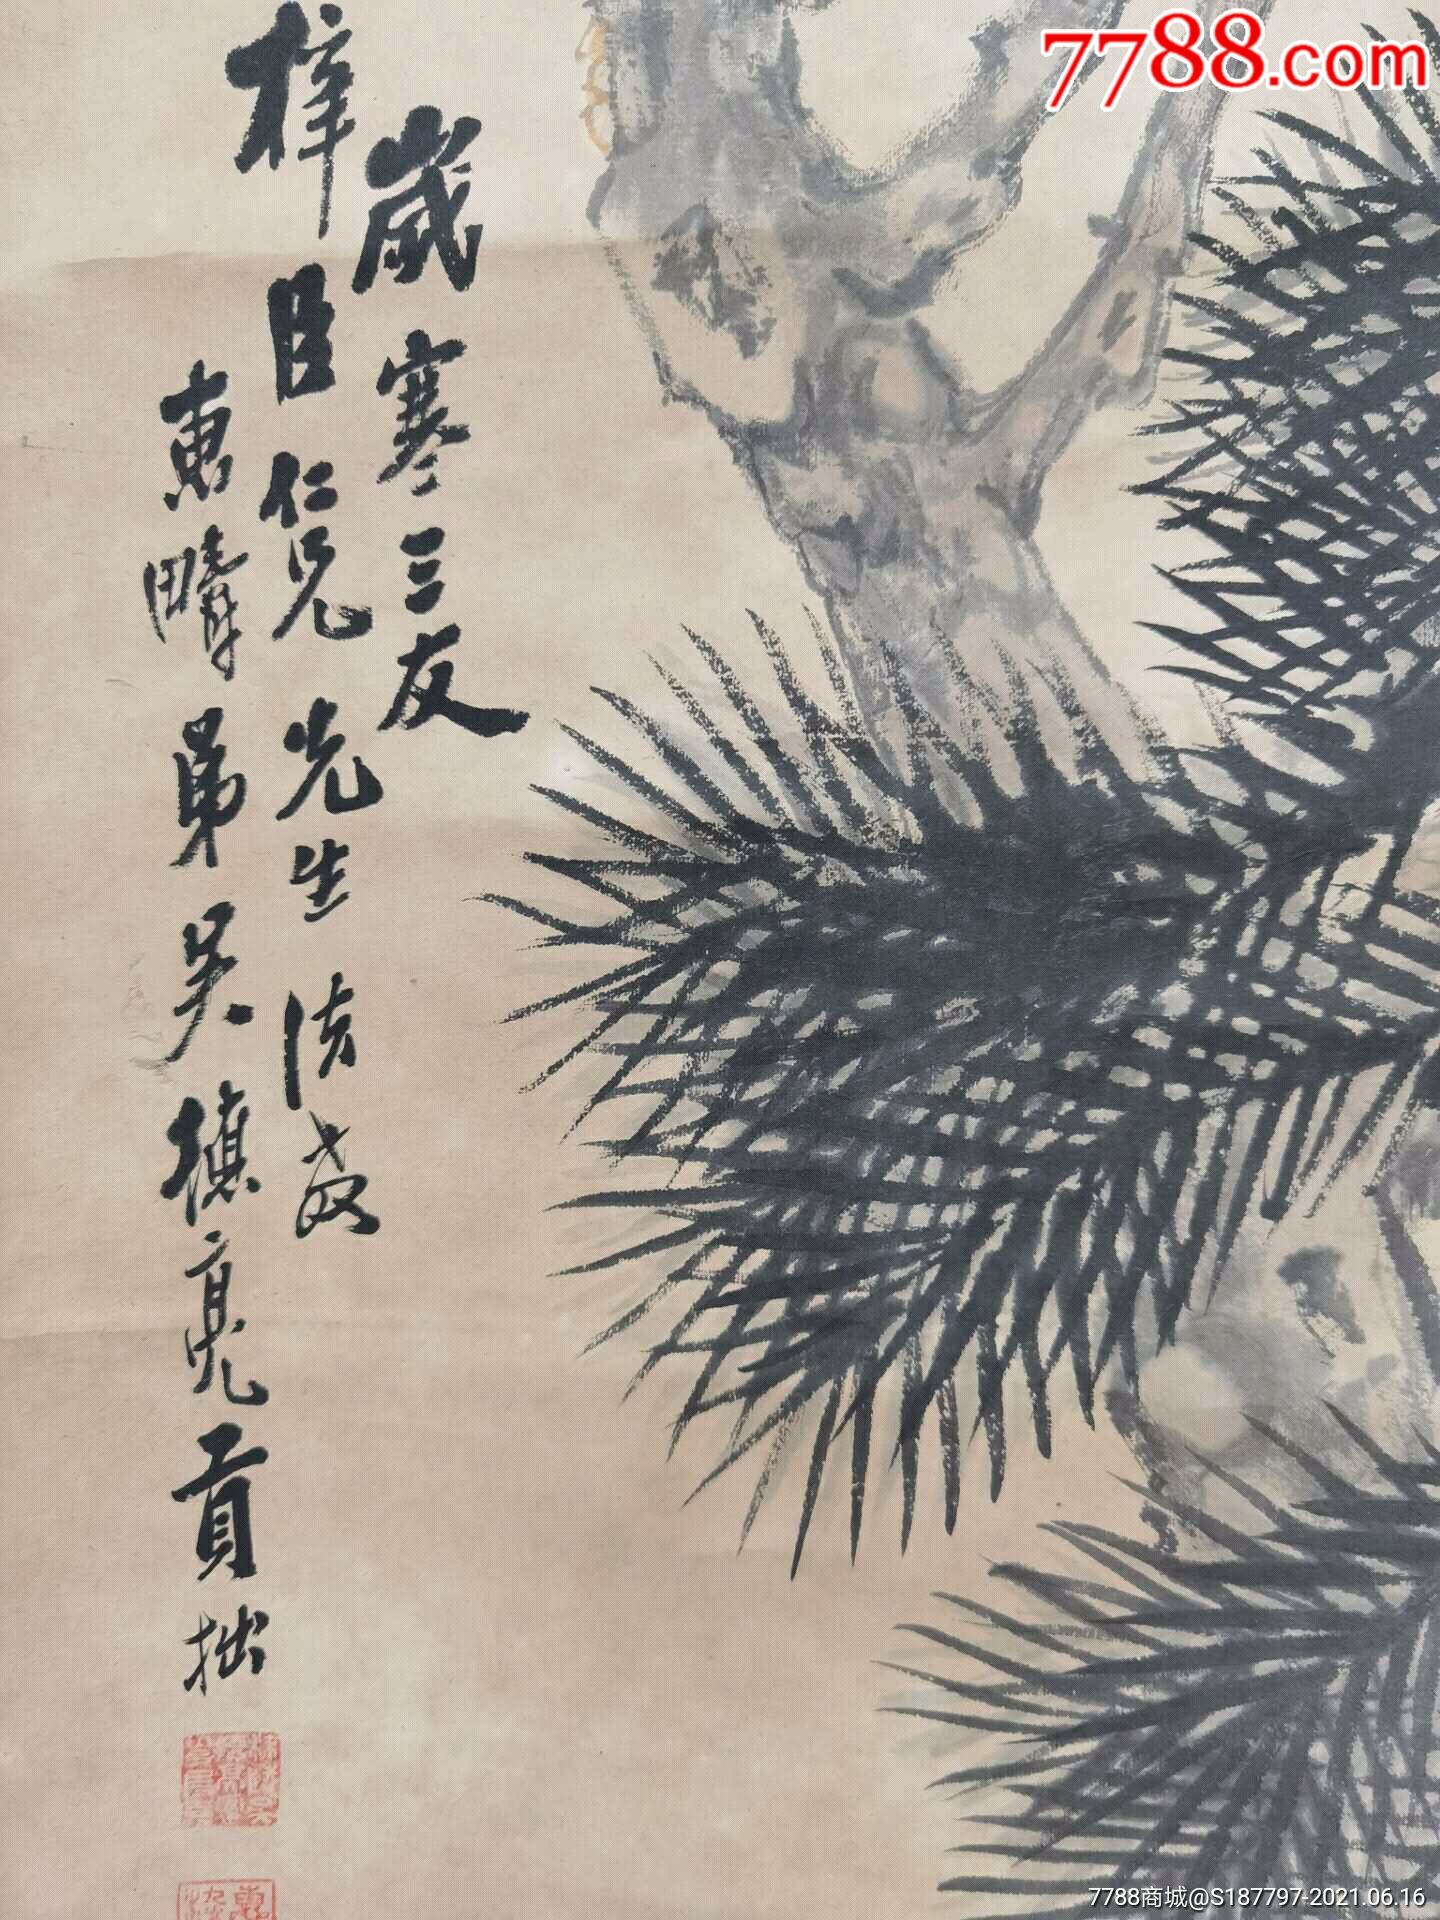 7788.com
歲寒三友
梓臣仁兄先生法教
惠疇弟吳德亮貢拙
7788商城@S187797-2021.06.16